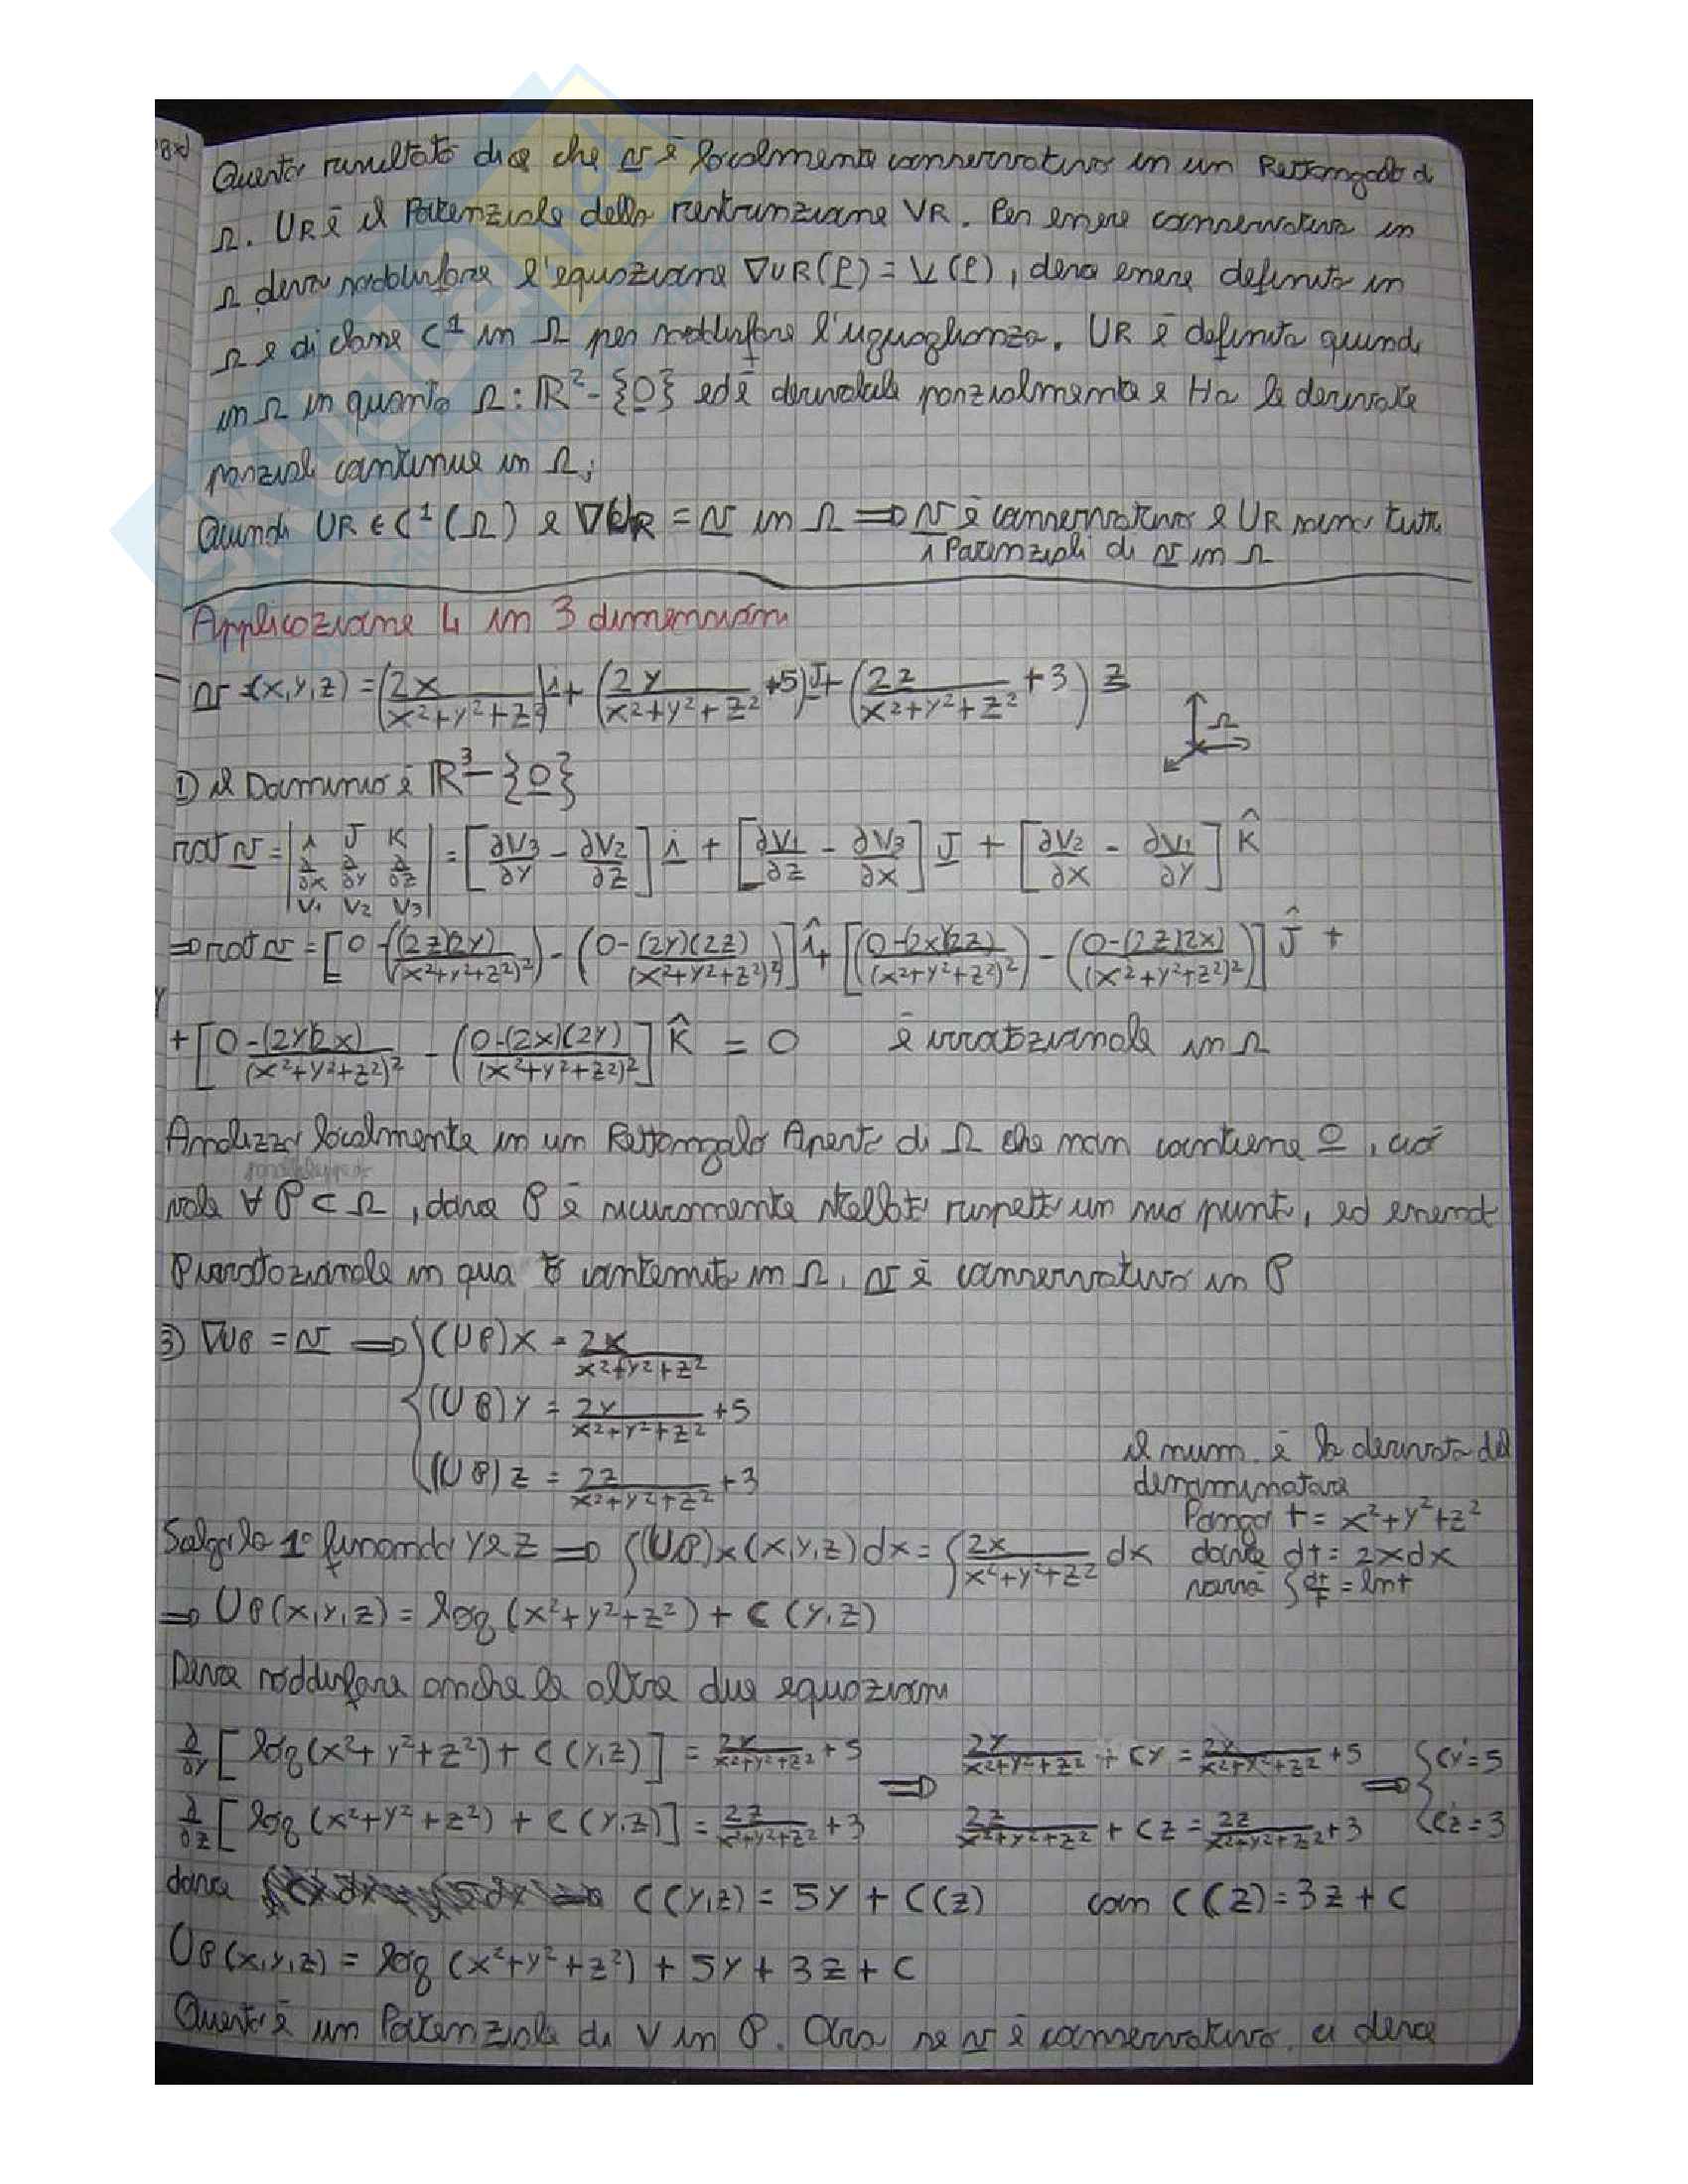 Questo risultato dice che v è localmente conservativo in un Rettangolo di
Ω. UR è il Potenziale della restrizione VR. Per essere conservativo in
Ω deve soddisfare l'equazione ∇UR(P) = V(P), deve essere definita in
Ω e di classe C¹ in Ω per soddisfare l'uguaglianza. UR è definita quindi
in Ω in quanto Ω: ℝ² - {0} ed è derivabile parzialmente e Ha le derivate
parziali continue in Ω;
Quindi UR ∈ C¹(Ω) e ∇UR = v in Ω ⇒ v è conservativo e UR sono tutti
i Potenziali di v in Ω
Applicazione 4 in 3 dimensioni
v =(x,y,z) = (2x/(x²+y²+z²))i + (2y/(x²+y²+z²) +5)J + (2z/(x²+y²+z²) +3) z
Ω
1) il Dominio è ℝ³ - {0}
rot v = |i J K; ∂/∂x ∂/∂y ∂/∂z; V1 V2 V3| = [∂V3/∂y - ∂V2/∂z] i + [∂V1/∂z - ∂V3/∂x] J + [∂V2/∂x - ∂V1/∂y] K̂
⇒ rot v = [0-((2z)(2y)/(x²+y²+z²)²) - (0-(2y)(2z)/(x²+y²+z²)²)] î + [(0-(2x)(2z)/(x²+y²+z²)²) - (0-(2z)(2x)/(x²+y²+z²)²)] Ĵ +
+ [0-(2y)(2x)/(x²+y²+z²)² - (0-(2x)(2y)/(x²+y²+z²)²)] K̂ = 0 è irrotazionale in Ω
Analizzo localmente in un Rettangolo Aperto di Ω che non contiene 0, ciò
vale ∀ P ⊂ Ω, dove P è sicuramente stellato rispetto un suo punto, ed essendo
P irrotazionale in quanto contenuto in Ω, v è conservativo in P
3) ∇UP = v ⇒ { (UP)x = 2x/(x²+y²+z²)
(UP)y = 2y/(x²+y²+z²) +5
(UP)z = 2z/(x²+y²+z²) +3
il num. è la derivata del
denominatore
Pongo t = x²+y²+z²
dove dt = 2xdx
sarà ∫dt/t = lnt
Scelgo la 1° fissando y e z ⇒ ∫(UP)x(x,y,z)dx = ∫2x/(x²+y²+z²) dx
⇒ UP(x,y,z) = log(x²+y²+z²) + C(y,z)
Deve soddisfare anche le altre due equazioni
∂/∂y [log(x²+y²+z²) + C(y,z)] = 2y/(x²+y²+z²) +5 ⇒ 2y/(x²+y²+z²) + Cy = 2y/(x²+y²+z²) +5 ⇒ { Cy'=5
∂/∂z [log(x²+y²+z²) + C(y,z)] = 2z/(x²+y²+z²) +3 2z/(x²+y²+z²) + Cz = 2z/(x²+y²+z²) +3 Cz'=3
dove C(y,z) = 5y + C(z) con C(z) = 3z + C
UP(x,y,z) = log(x²+y²+z²) + 5y + 3z + C
Questo è un Potenziale di V in P. Ora se v è conservativo, ci deve